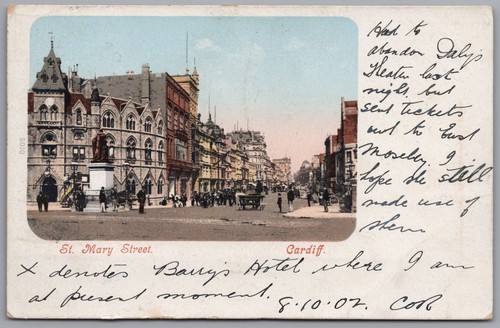 Had to
abandon Daly's
Theater last
night but
sent tickets
out to East
Moseley. I
hope she still
made use of
them
St. Mary Street.
Cardiff.
X denotes Barry's Hotel where I am
at present moment. 8.10.02. Cob